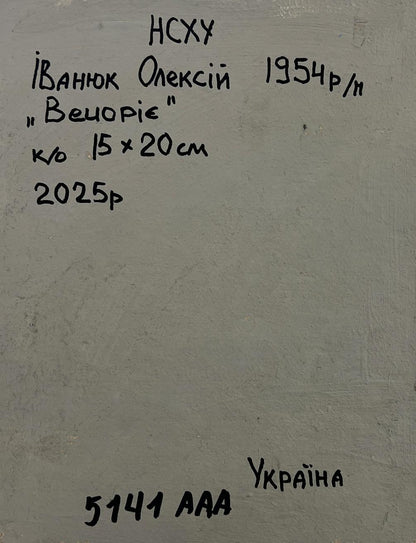 НСХУ
Іванюк Олексій 1954р/н
„Вечоріє"
к/о 15×20см
2025р
Україна
5141 ААА